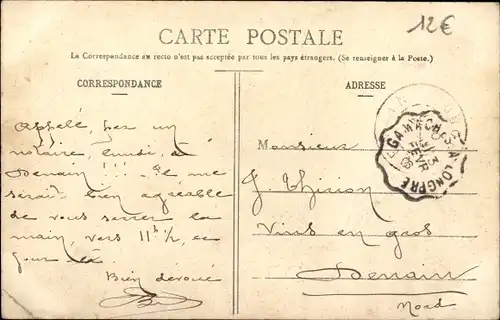 12€
CARTE POSTALE
La Correspondance au recto n'est pas acceptée par tous les pays étrangers. (Se renseigner à la Poste.)
CORRESPONDANCE
ADRESSE
Appelé, par un
notaire, lundi, à
Denain!!! Il me
serait bien agréable
de vous serrer la
main, vers 11h ½, ce
jour là.
Bien dévoué
GAMACHES A LONGPRÉ
3
FEVR
Monsieur
J. Thirion
Vins en gros
Denain
Nord